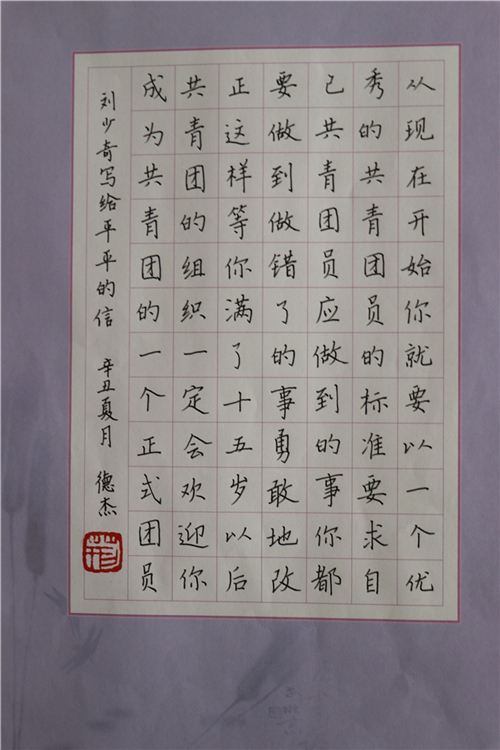 从现在开始你就要以一个优
秀的共青团员的标准要求自
己共青团员应做到的事你都
要做到做错了的事勇敢地改
正这样等你满了十五岁以后
共青团的组织一定会欢迎你
成为共青团的一个正式团员
刘少奇写给平平的信 辛丑夏月 德杰